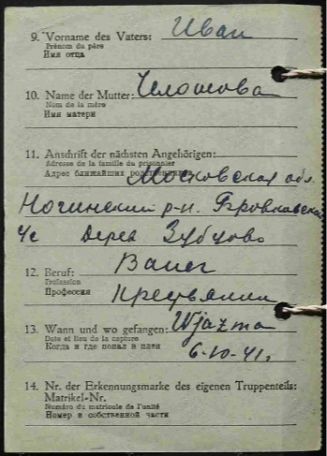 9. Vorname des Vaters: Иван
Prénom du père
Имя отца
10. Name der Mutter:
Nom de la mère
Имя матери
11. Anschrift der nächsten Angehörigen:
Adresse de la famille du prisonnier
Адрес ближайших родственников Московская обл.
Ногинский р-н.
Дерев Зубцово
12. Beruf: Bauer
Profession
Профессия Крестьянин
13. Wann und wo gefangen: Wjazma
Date et lieu de la capture
Когда и где попал в плен 6.10.41.
14. Nr. der Erkennungsmarke des eigenen Truppenteils:
Matrikel-Nr.
Numéro du matricule de l'unité
Номер в собственной части